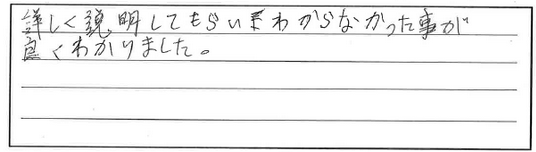 詳しく説明してもらいわからなかった事が
良くわかりました。